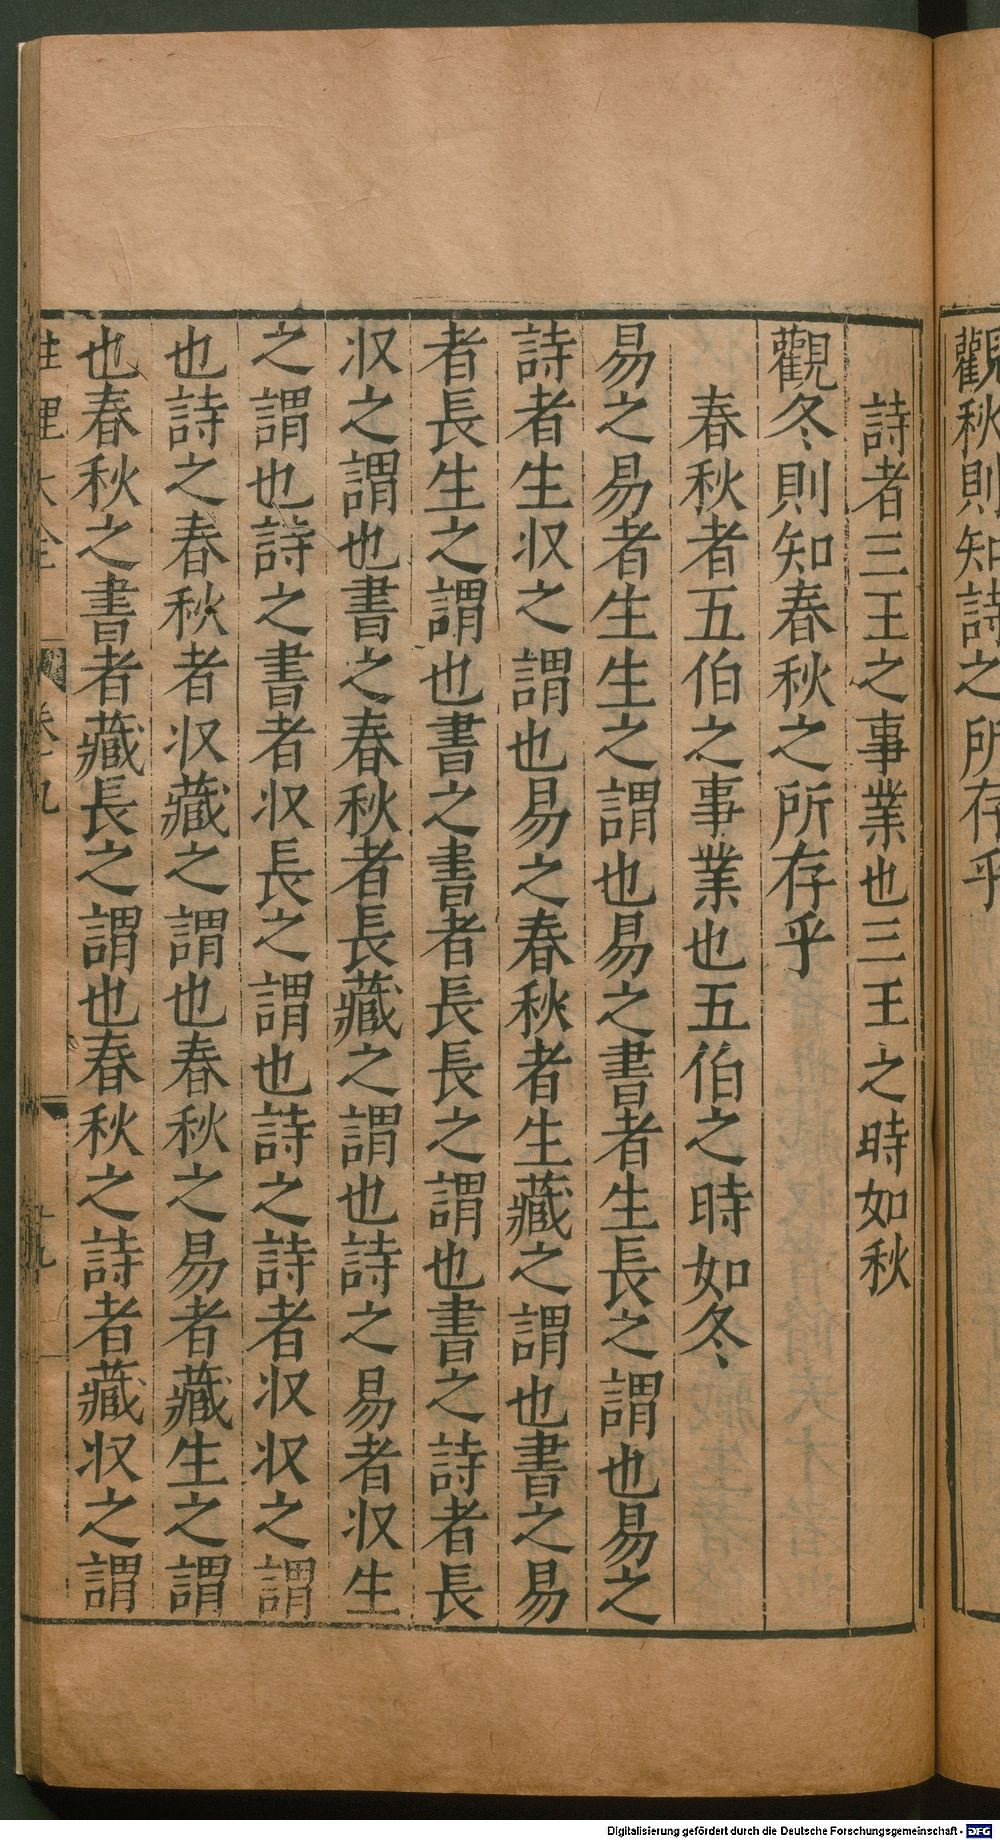 觀秋則知詩之所存乎
詩者三王之事業也三王之時如秋
觀冬則知春秋之所存乎
春秋者五伯之事業也五伯之時如冬
易之易者生生之謂也易之書者生長之謂也易之
詩者生収之謂也易之春秋者生藏之謂也書之易
者長生之謂也書之書者長長之謂也書之詩者長
収之謂也書之春秋者長藏之謂也詩之易者収生
之謂也詩之書者収長之謂也詩之詩者収収之謂
也詩之春秋者収藏之謂也春秋之易者藏生之謂
也春秋之書者藏長之謂也春秋之詩者藏収之謂
性理大全 卷九 十九
Digitalisierung gefördert durch die Deutsche Forschungsgemeinschaft - DFG